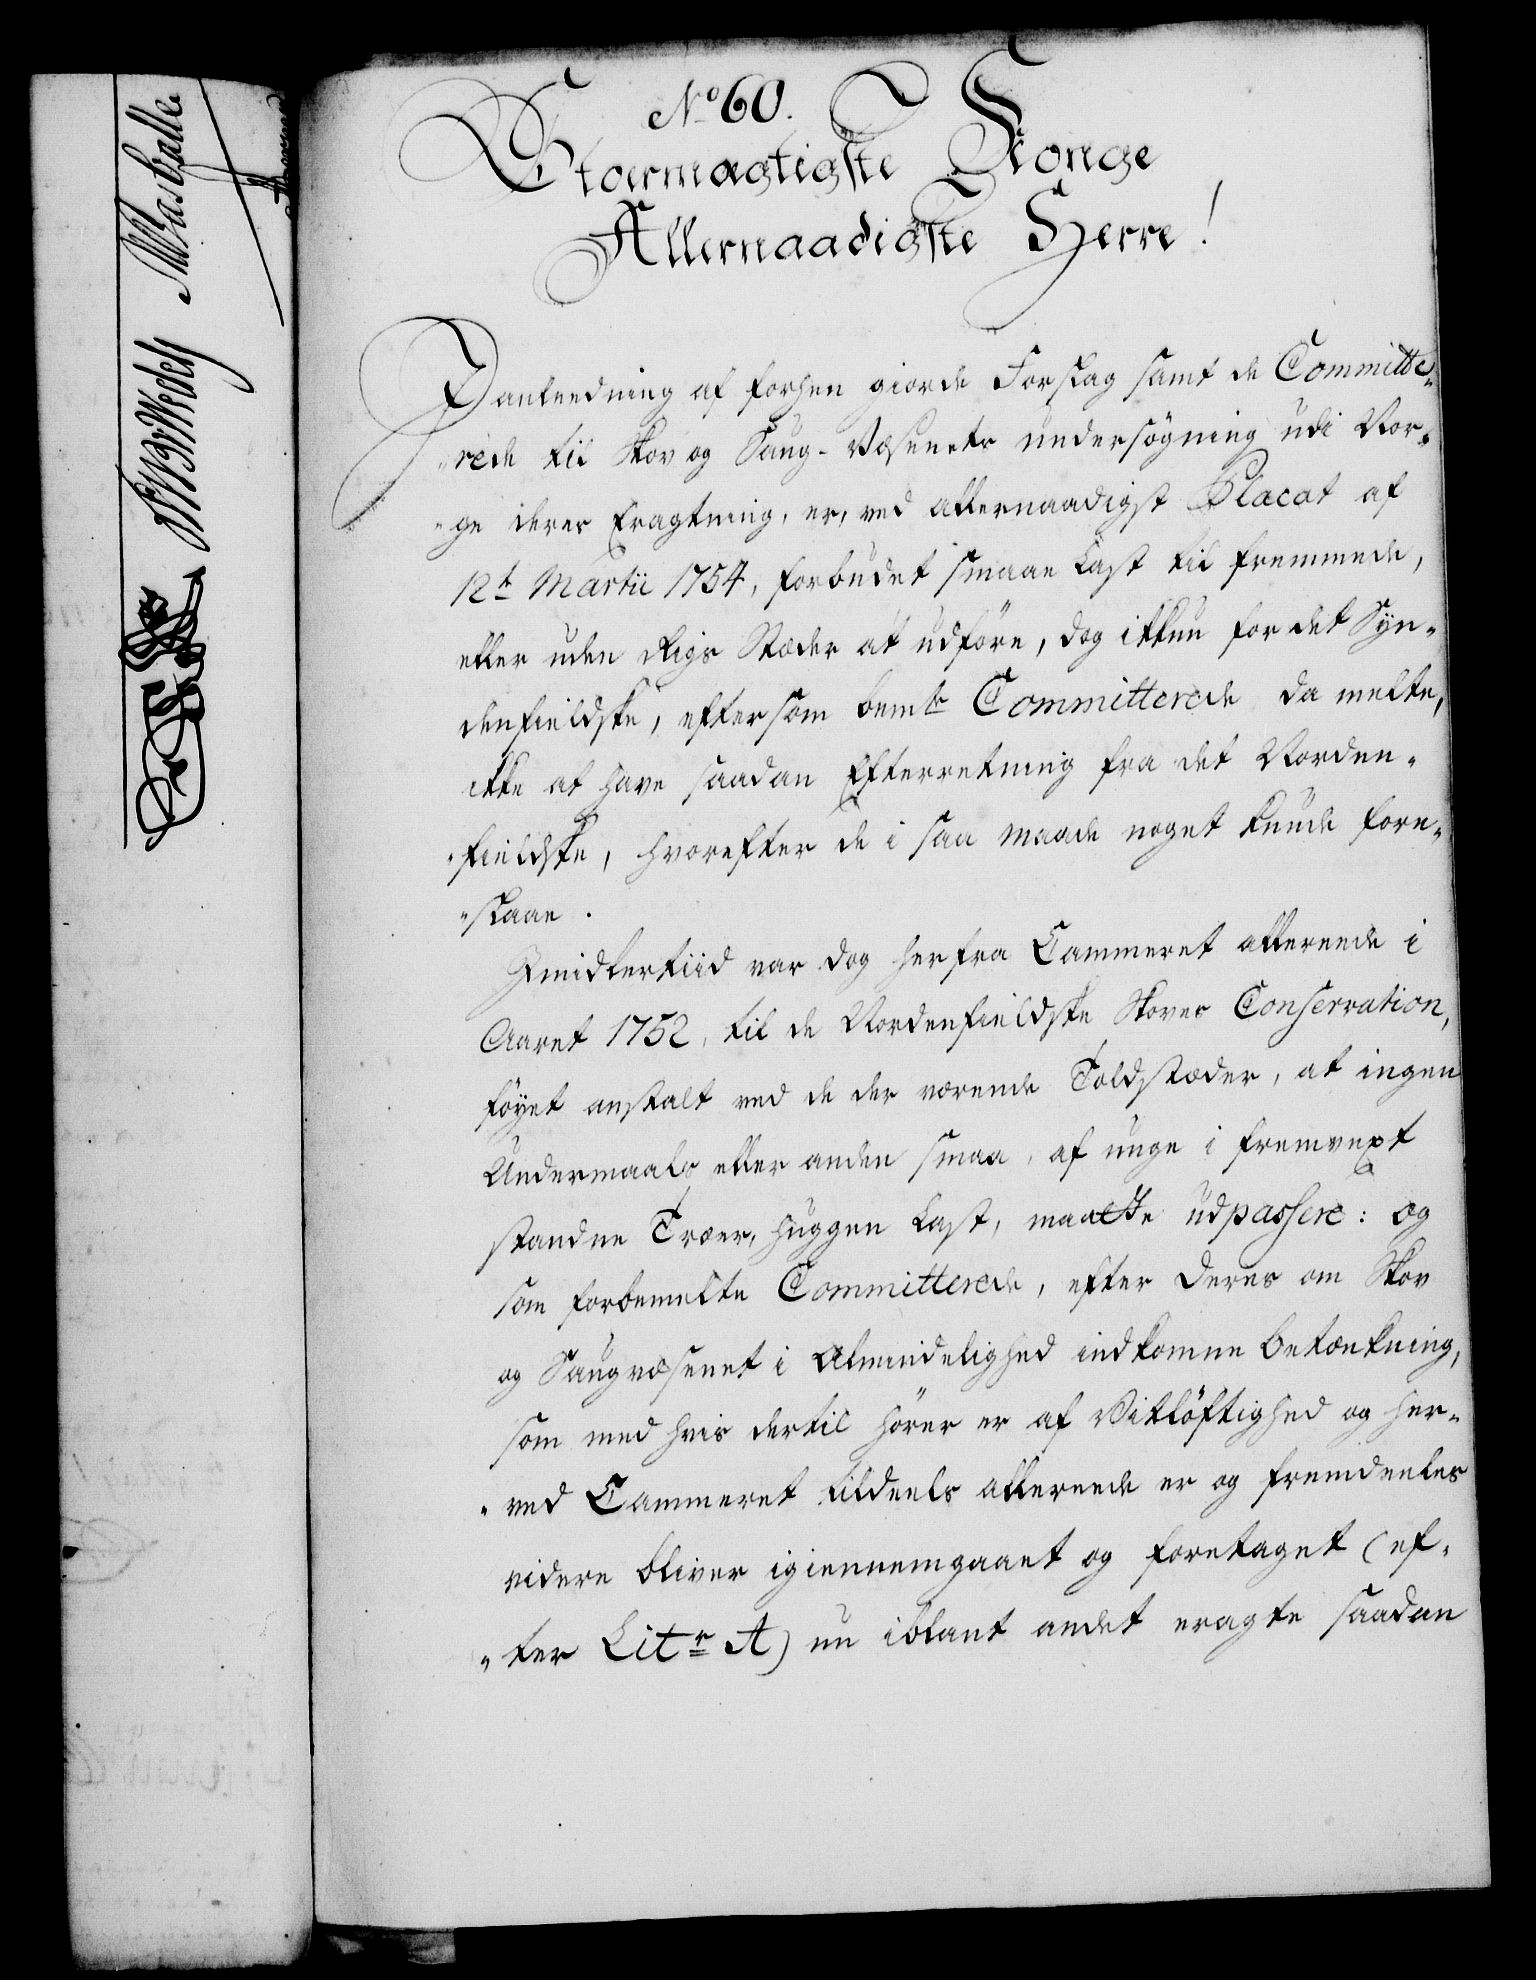 No 60.
Stoermægtigste Konge
Allernaadigste Herre!
I anleedning af forhen giorde Forslag samt de Committe-
rede til Skov og Saug-Væsenets undersøgning udi Nor-
ge deres Eragtning, er, ved allernaadigst Placat af
12t Martii 1754, forbudet smaae Last til fremmede,
eller uden Rigs Stæder at udføre, dog ikkun for det Syn-
denfieldske, eftersom bemte Committerede da melte,
ikke at have saadan Efterretning fra det Norden-
fieldske, hvorefter de i saa maade noget kunde fore-
slaae.
Imidlertiid var dog her fra Cammeret allereede i
Aaret 1752, til de Nordenfieldske Skoves Conservation,
føyet anstalt ved de der værende Toldstæder, at ingen
Undermaals eller anden smaa, af unge i fremvext
standne Træer, huggen Last, maatte udpassere: og
som forbemelte Committerede, efter deres om Skov
og Saugvæsenet i Almindelighed indkomne betænkning,
som med hvis dertil hører er af Vitløftighed og her-
ved Cammeret tildeels allereede er og fremdeeles
videre bliver igiennemgaaet og foretaget (ef-
ter Litr A) nu iblant andet eragte saadan